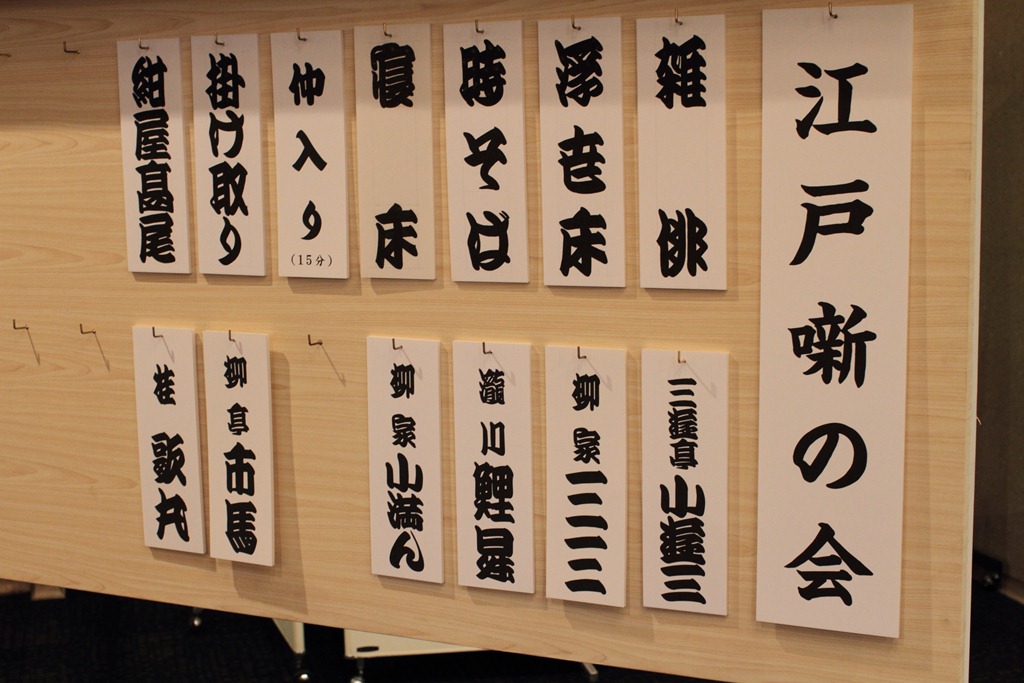 江戸噺の会
雑俳
浮世床
時そば
寝床
仲入り
(15分)
掛け取り
紺屋高尾
三遊亭小遊三
柳家三三
瀧川鯉昇
柳家小満ん
柳亭市馬
桂歌丸